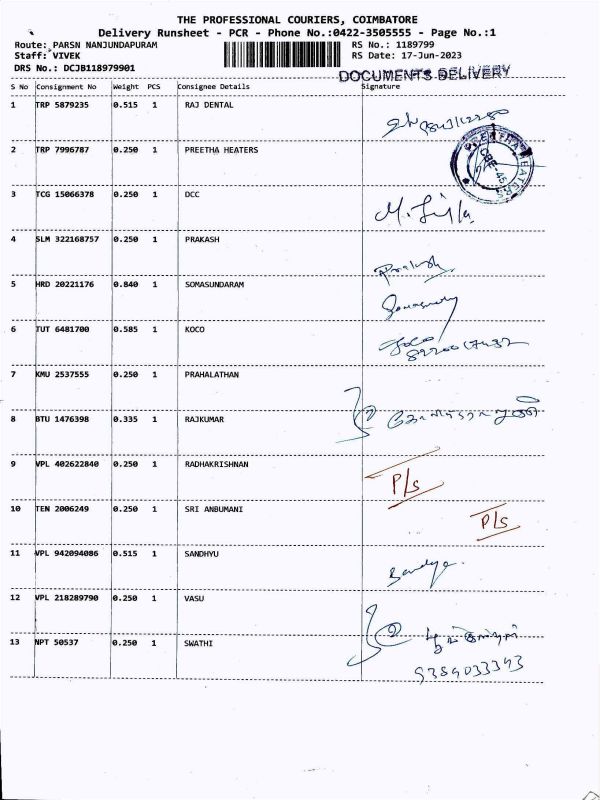 THE PROFESSIONAL COURIERS, COIMBATORE
Delivery Runsheet - PCR - Phone No.:0422-3505555 - Page No.:1
Route: PARSN NANJUNDAPURAM RS No.: 1189799
Staff: VIVEK RS Date: 17-Jun-2023
DRS No.: DCJB118979901
DOCUMENTS DELIVERY
S No Consignment No Weight PCS Consignee Details Signature
1 TRP 5879235 0.515 1 RAJ DENTAL
2 TRP 7996787 0.250 1 PREETHA HEATERS
3 TCG 15066378 0.250 1 DCC
4 SLM 322168757 0.250 1 PRAKASH
Prakash
5 HRD 20221176 0.840 1 SOMASUNDARAM
6 TUT 6481700 0.585 1 KOCO
7 KMU 2537555 0.250 1 PRAHALATHAN
8 BTU 1476398 0.335 1 RAJKUMAR
9 VPL 402622840 0.250 1 RADHAKRISHNAN
P/s
10 TEN 2006249 0.250 1 SRI ANBUMANI
P/s
11 VPL 942094086 0.515 1 SANDHYU
12 VPL 218289790 0.250 1 VASU
13 NPT 50537 0.250 1 SWATHI
9359033393